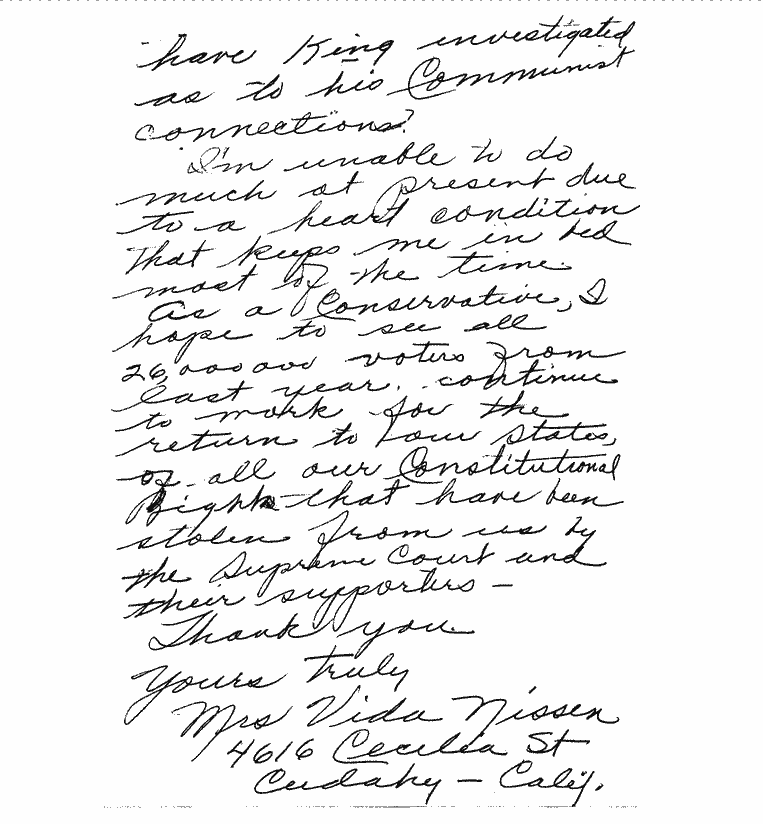 have King investigated
as to his Communist
connections?
I'm unable to do
much at present due
to a heart condition
that keeps me in bed
most of the time.
As a Conservative, I
hope to see all
26,000000 voters from
last year. continue
to work for the
return to our states,
of all our Constitutional
Rights that have been
stolen from us by
the Supreme Court and
their supporters –
Thank you.
Yours truly
Mrs Vida Nissen
4616 Cecilia St
Cudahy – Calif.